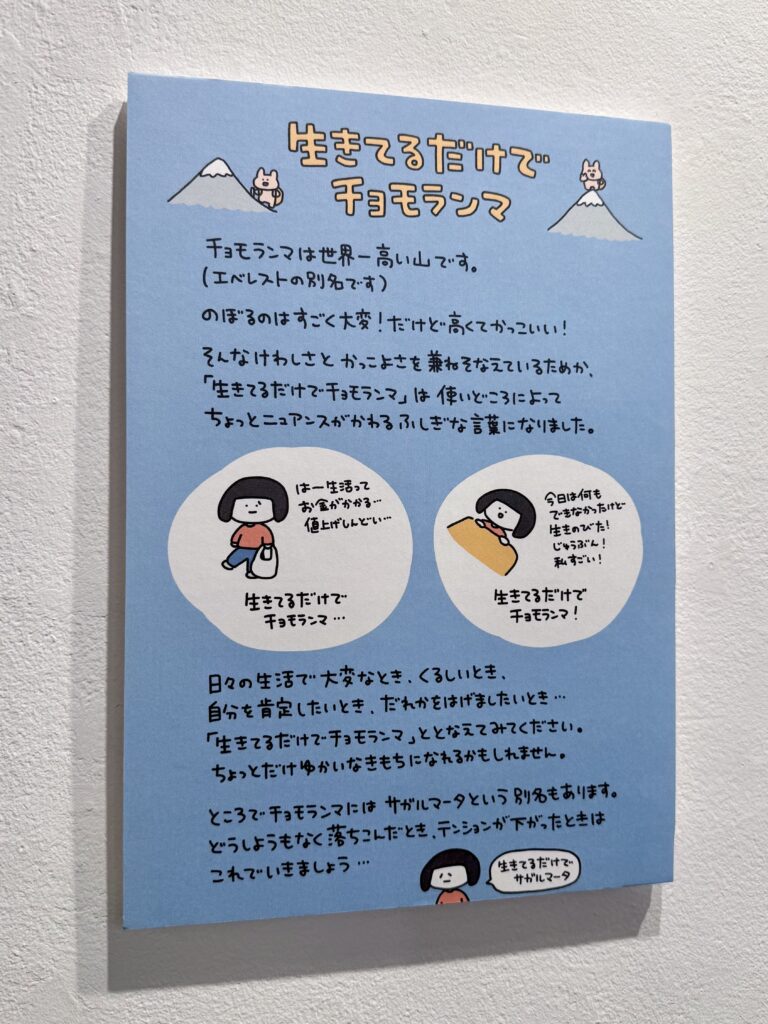 生きてるだけで
チョモランマ
チョモランマは世界一高い山です。
(エベレストの別名です)
のぼるのはすごく大変!だけど高くてかっこいい!
そんなけわしさと かっこよさを兼ねそなえているためか、
「生きてるだけでチョモランマ」は 使いどころによって
ちょっとニュアンスがかわる ふしぎな言葉になりました。
は一生活って
お金がかかる…
値上げしんどい…
生きてるだけで
チョモランマ…
今日は何も
できなかったけど
生きのびた!
じゅうぶん!
私すごい!
生きてるだけで
チョモランマ!
日々の生活で大変なとき、くるしいとき、
自分を肯定したいとき、だれかをはげましたいとき…
「生きてるだけでチョモランマ」ととなえてみてください。
ちょっとだけゆかいなきもちになれるかもしれません。
ところでチョモランマには サガルマータという別名もあります。
どうしようもなく落ちこんだとき、テンションが下がったときは
これでいきましょう…
生きてるだけで
サガルマータ